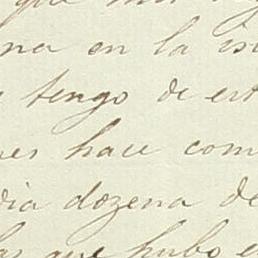 que
na en la
tengo de est
hace com
dia dozena de
que hubo